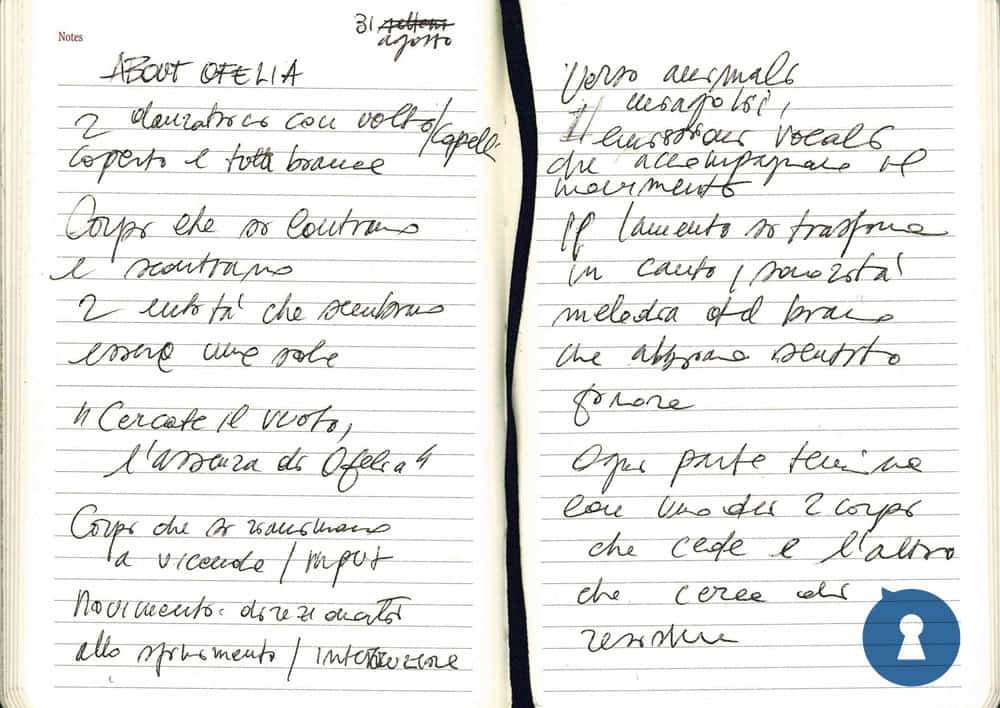 Notes
31 agosto
ABOUT OFELIA
2 danzatrici con volto/capelli
coperto e tutta bianca
Corpi che si contrano
e scontrano
2 entità che sembrano
essere una sola
"Cercate il vuoto,
l'assenza di Ofelia"
Corpi che si rianimano
a vicenda / input
Movimento: direzionator
allo sfinimento / interruzione
Verso animale
Il
emissioni vocali
che accompagnano il
movimento
Il lamento si trasforma
in canto, sonorità
melodia del brano
che abbiamo sentito
Ogni parte termina
con uno dei 2 corpi
che cede e l'altro
che cerca di
resistere